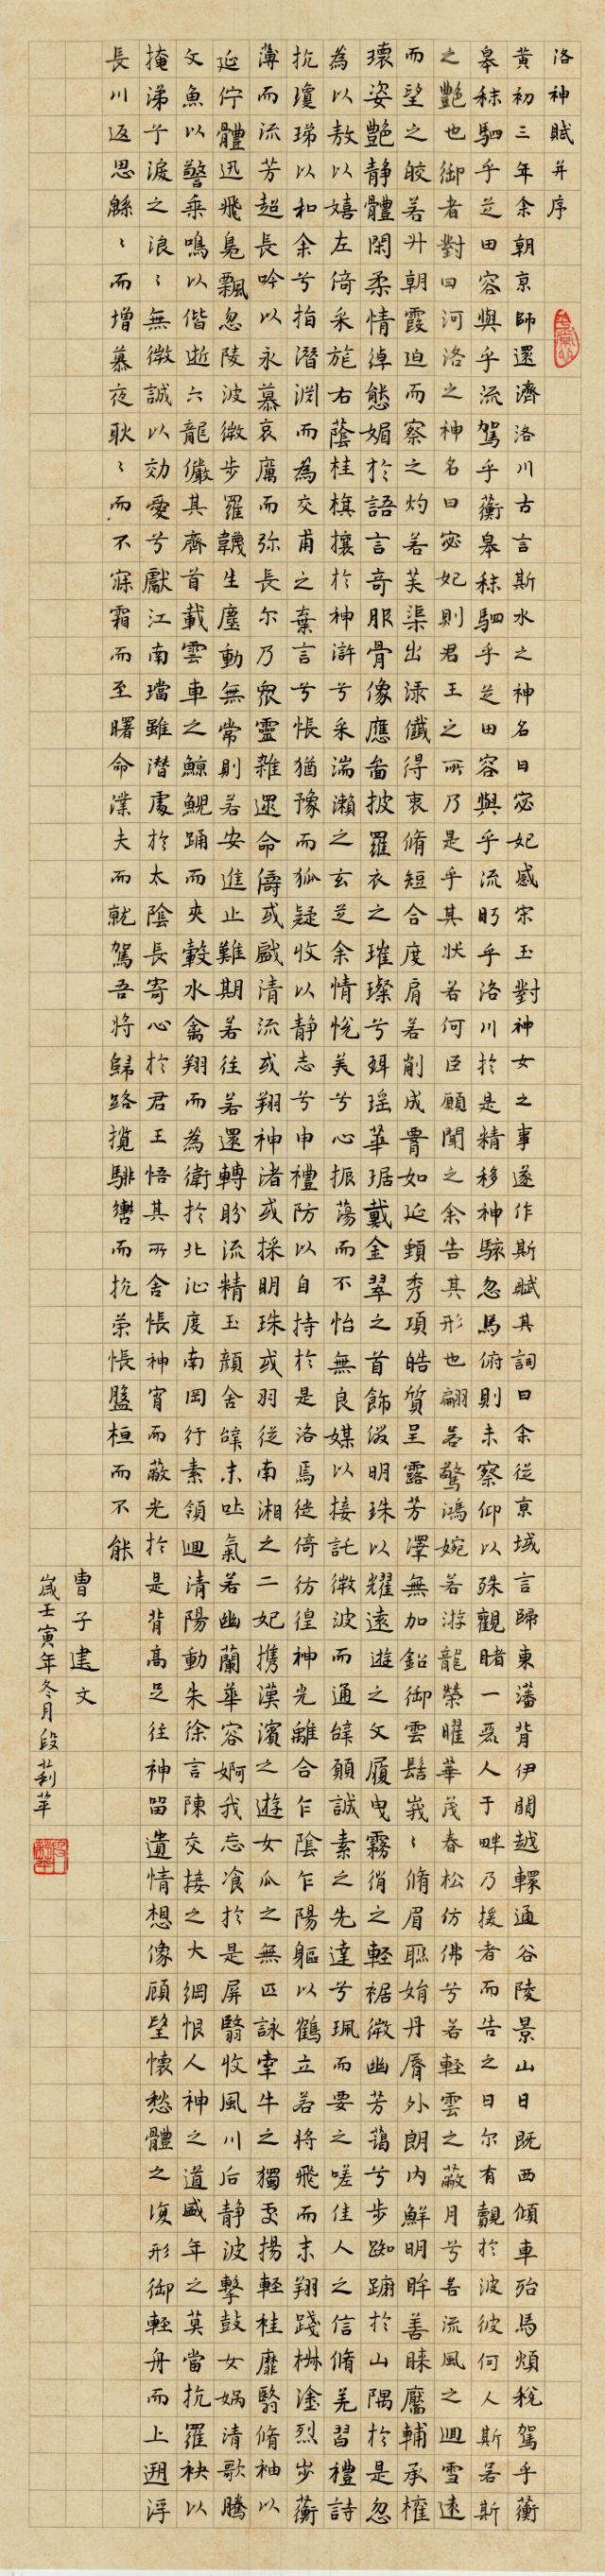 洛神賦并序
黃初三年余朝京師還濟洛川古言斯水之神名曰宓妃感宋玉對神女之事遂作斯賦其詞曰余從京域言歸東藩背伊闕越轘通谷陵景山日既西傾車殆馬煩稅駕乎蘅
皋秣駟乎芝田容與乎流駕乎蘅皋秣駟乎芝田容與乎流眄乎洛川於是精移神駭忽焉俯則未察仰以殊觀睹一麗人于畔乃援者而告之曰尔有覿於波彼何人斯若斯
之艷也御者對曰河洛之神名曰宓妃則君王之所乃是乎其狀若何臣願聞之余告其形也翩若驚鴻婉若游龍榮曜華茂春松仿佛兮若輕雲之蔽月兮若流風之迴雪遠
而望之皎若升朝霞迫而察之灼若芙渠出淥儀得衷脩短合度肩若削成腰如延頸秀項皓質呈露芳澤無加鉛御雲髻峩〻脩眉聯娟丹脣外朗內鮮明眸善睞靨輔承權
瓌姿艷静體閑柔情綽態媚於語言奇服骨像應啚披羅衣之璀璨兮珥瑶華琚戴金翠之首飾綴明珠以耀遠遊之文履曳霧綃之輕裾微幽芳藹兮步踟蹰於山隅於是忽
為以敖以嬉左倚采旄右蔭桂旗攘於神滸兮采湍瀨之玄芝余情悅美兮心振蕩而不怡無良媒以接託微波而通辭願誠素之先達兮珮而要之嗟佳人之信脩羌習禮詩
抗瓊珶以和余兮指潛淵而為交甫之棄言兮悵猶豫而狐疑收以静志兮申禮防以自持於是洛焉徙倚彷徨神光離合乍陰乍陽軀以鶴立若將飛而未翔踐椒塗烈步蘅
薄而流芳超長吟以永慕哀厲而弥長尔乃衆靈雜還命儔或戲清流或翔神渚或採明珠或羽從南湘之二妃携漢濱之遊女瓜之無匹詠牽牛之獨處揚輕桂靡翳脩袖以
延佇體迅飛鳧飄忽陵波微步羅韈生塵動無常則若安進止難期若往若還轉盼流精玉顏含辭未吐氣若幽蘭華容婀我忘飡於是屏翳收風川后静波擊鼓女媧清歌騰
文魚以警乘鳴以偕逝六龍儼其齊首載雲車之鯨鯢踊而夾轂水禽翔而為衛於北沚度南岡行素領迴清陽動朱徐言陳交接之大綱恨人神之道盛年之莫當抗羅袂以
掩涕于淚之浪〻無微誠以効愛兮獻江南璫雖潛處於太陰長寄心於君王悟其所舍悵神宵而蔽光於是背高足往神留遺情想像顧望懷愁體之復形御輕舟而上遡浮
長川返思緜〻而增慕夜耿〻而不寐霜而至曙命濮夫而就駕吾將歸路攬騑轡而抗策悵盤桓而不能
曹子建文
歲壬寅年冬月段莉苹